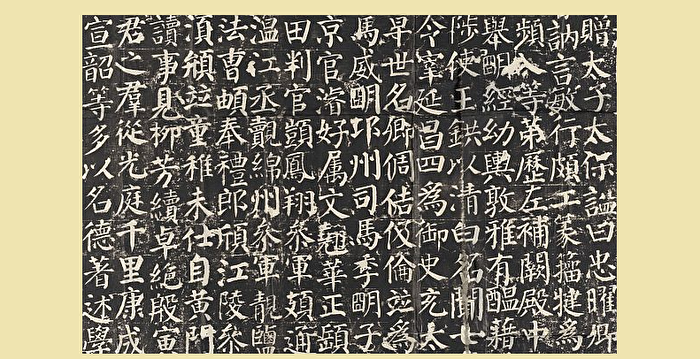 贈太子太保謚曰忠曜卿
訥言敏行頗工篆籀犍為
頻入等第歷左補闕殿中
舉明經幼輿敦雅有醞藉
陟使王鉷以清白名聞七
令寧延昌四為御史充太
早世名卿倜佶伉倫並為
馬威明邛州司馬季明子
京官濬好属文翹華正頤
田判官顗鳳翔叅軍頍通
温江丞覿綿州叅軍靚鹽
法曹頔奉禮郎頎江陵叅
湏頲並童稚未仕自黃門
讀事見柳芳續卓絕殷寅
君之羣從光庭千里康成
宣韶等多以名德著述學